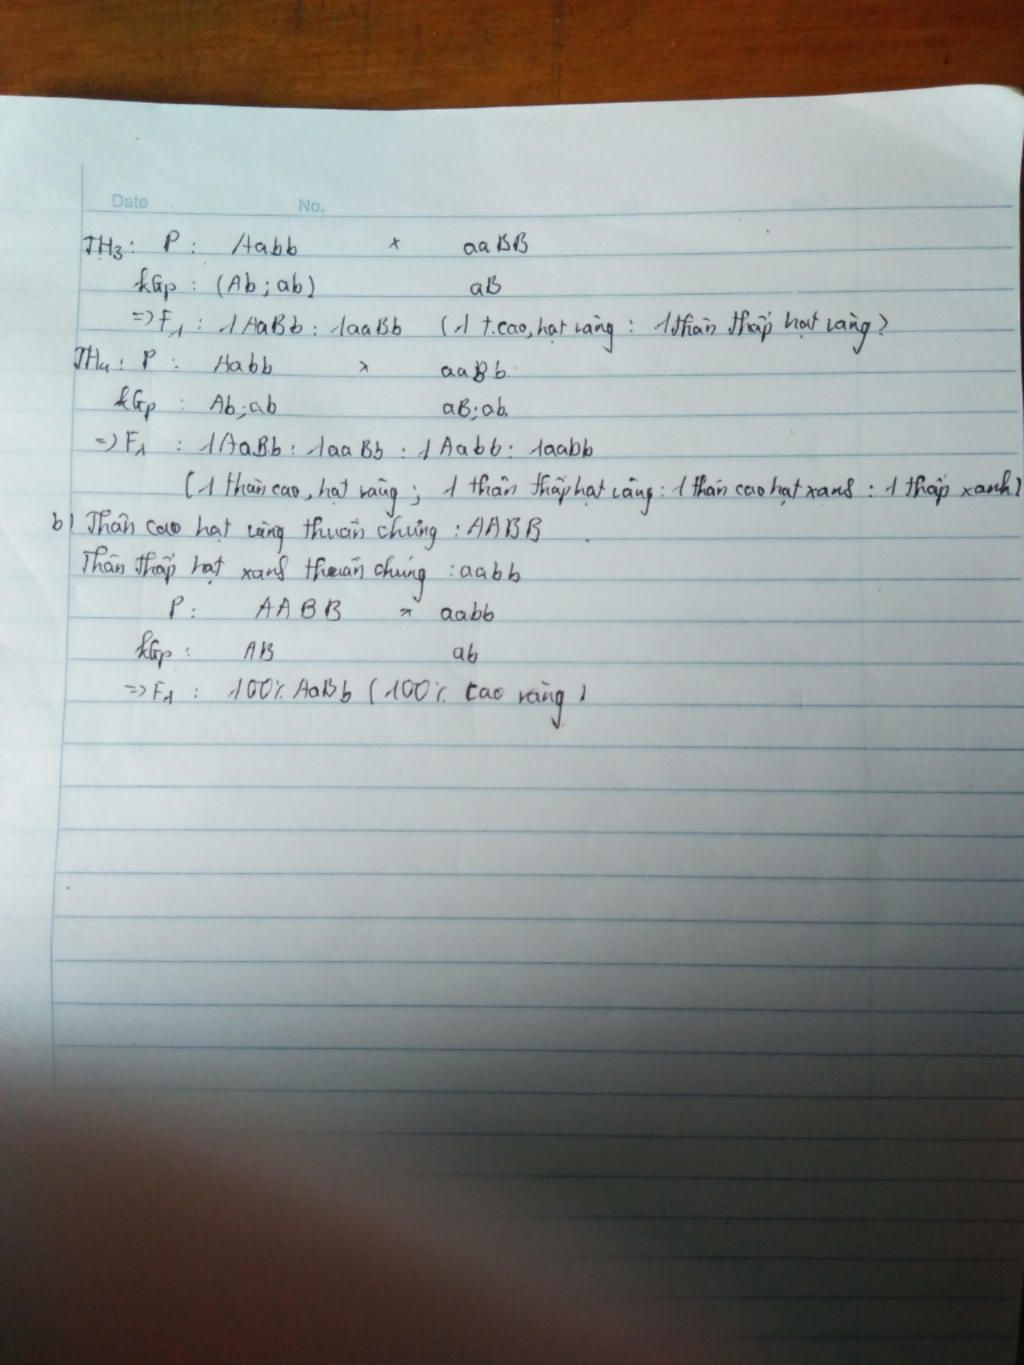 Date No.
TH3: P: Aabb x aaBB
kGp: (Ab; ab) aB
=> F1: 1AaBb: 1aaBb (1 t.cao, hạt vàng: 1 thân thấp hạt vàng)
TH4: P: Aabb x aaBb
kGp: Ab; ab aB; ab.
=> F1: 1AaBb: 1aaBb: 1Aabb: 1aabb
(1 thân cao, hạt vàng; 1 thân thấp hạt vàng: 1 thân cao hạt xanh: 1 thấp xanh)
b) Thân cao hạt vàng thuần chủng: AABB
Thân thấp hạt xanh thuần chủng: aabb
P: AABB x aabb
kGp: AB ab
=> F1: 100% AaBb (100% cao vàng)